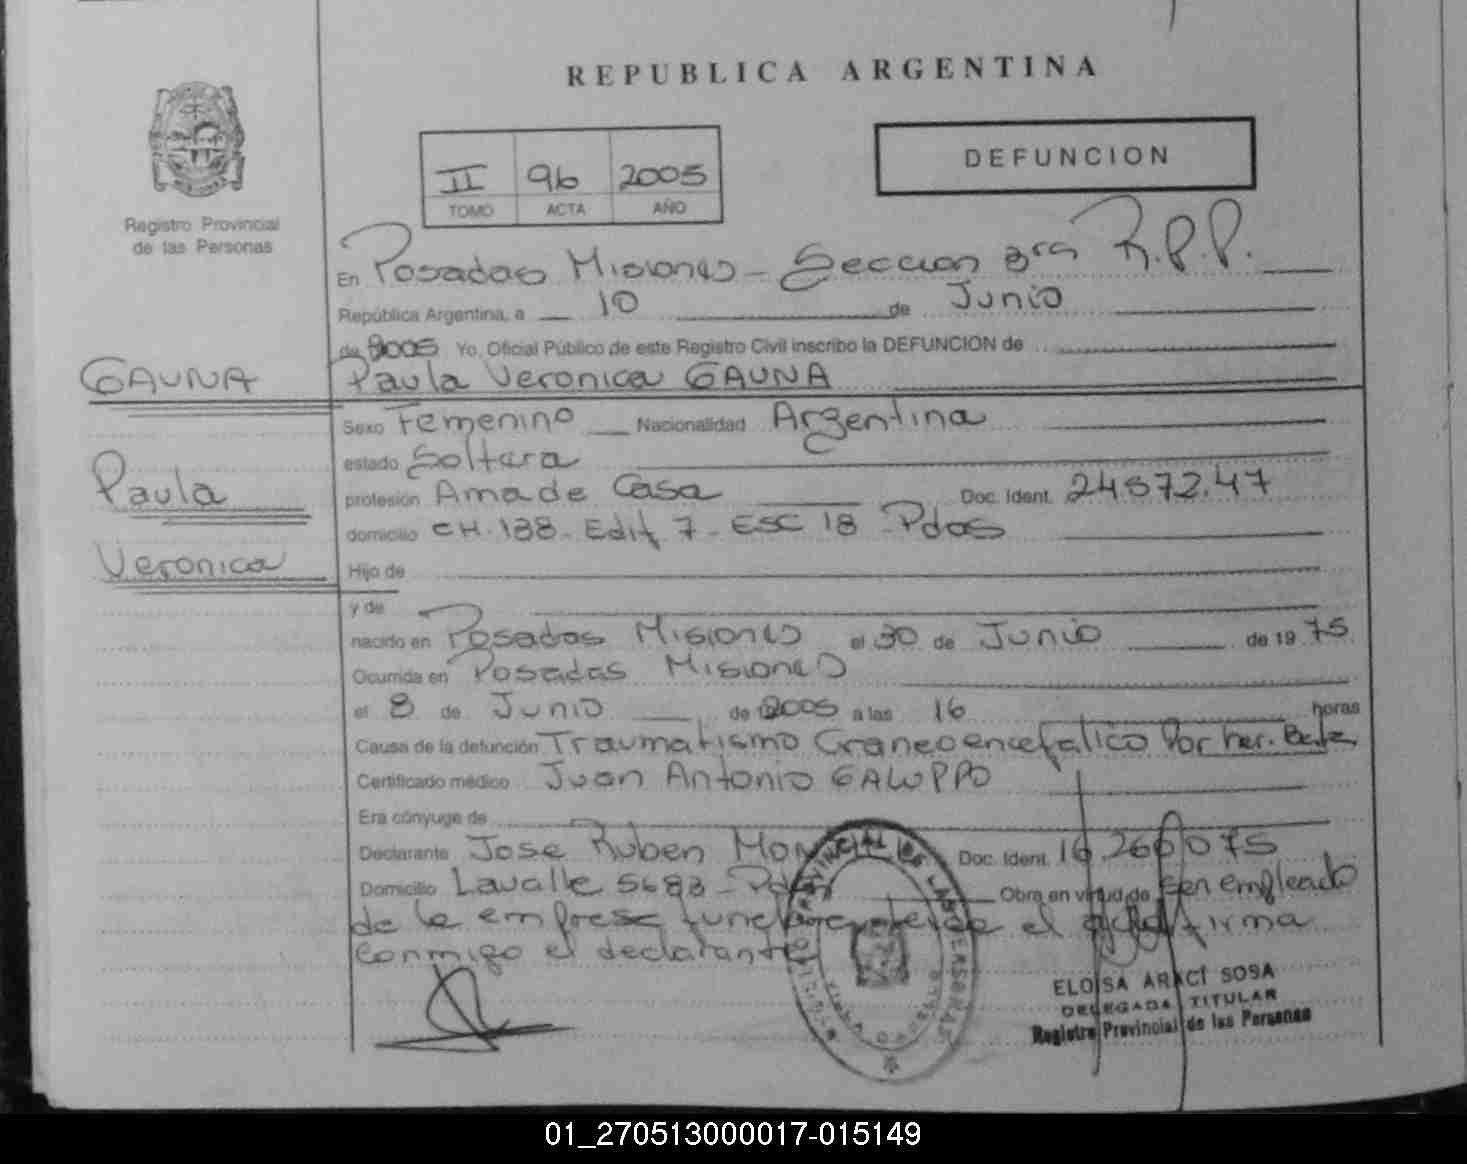 REPUBLICA ARGENTINA
II 96 2005
TOMO ACTA AÑO
DEFUNCION
Registro Provincial
de las Personas
En Posadas Misiones - Seccion 3ra R.P.P.
República Argentina, a 10 de Junio
de 2005 Yo, Oficial Público de este Registro Civil inscribo la DEFUNCION de
GAUNA
Paula Veronica GAUNA
Sexo Femenino Nacionalidad Argentina
estado Soltera
Paula
profesión Ama de Casa Doc. Ident. 24.572.47
domicilio CH. 188 - Edif 7 - ESC 18 - Pdas
Veronica
Hijo de
y de
nacido en Posadas Misiones el 30 de Junio de 19 75
Ocurrida en Posadas Misiones
el 8 de Junio de 2005 a las 16 horas
Causa de la defunción Traumatismo Craneoencefalico Por her.
Certificado médico Juan Antonio GALUPPO
Era cónyuge de
Declarante Jose Ruben Doc. Ident. 16.266.075
Domicilio Lavalle 5683 - Obra en virtud de ser empleado
de la empresa el firma
conmigo el declarante
ELOISA ARACÍ SOSA
DELEGADA TITULAR
Registro Provincial de las Personas
01_270513000017-015149